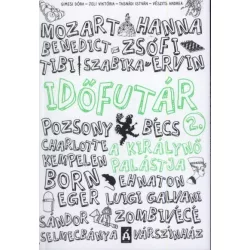 GIMESI DÓRA – JELI VIKTÓRIA – TASNÁDI ISTVÁN – VÉSZITS ANDREA
MOZART HANNA
BENEDICT ZSÓFI
TIBI SZABIKA ERVIN
IDŐFUTÁR
POZSONY BÉCS 2.
CHARLOTTE A KIRÁLYNŐ
KEMPELEN PALÁSTJA
BORN EHNATON
EGER LUIGI GALVANI
SÁNDOR ZOMBIVÉCÉ
SELMECBÁNYA A VÁRSZÍNHÁZ